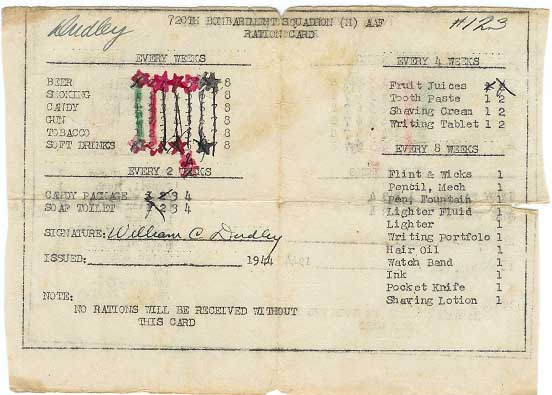 Dudley
#123
720TH BOMBARDMENT SQUADRON (H) AAF
RATION CARD
EVERY WEEKS
BEER 8
SMOKING 8
CANDY 8
GUM 8
TOBACCO 8
SOFT DRINKS 8
EVERY 2 WEEKS
CANDY PACKAGE 1 2 3 4
SOAP TOILET 1 2 3 4
SIGNATURE: William C. Dudley
ISSUED: 1944
NOTE:
NO RATIONS WILL BE RECEIVED WITHOUT
THIS CARD
EVERY 4 WEEKS
Fruit Juices 1 2
Tooth Paste 1 2
Shaving Cream 1 2
Writing Tablet 1 2
EVERY 8 WEEKS
Flint & Wicks 1
Pencil, Mech 1
Pen, Fountain 1
Lighter Fluid 1
Lighter 1
Writing Portfolo 1
Hair Oil 1
Watch Band 1
Ink 1
Pocket Knife 1
Shaving Lotion 1